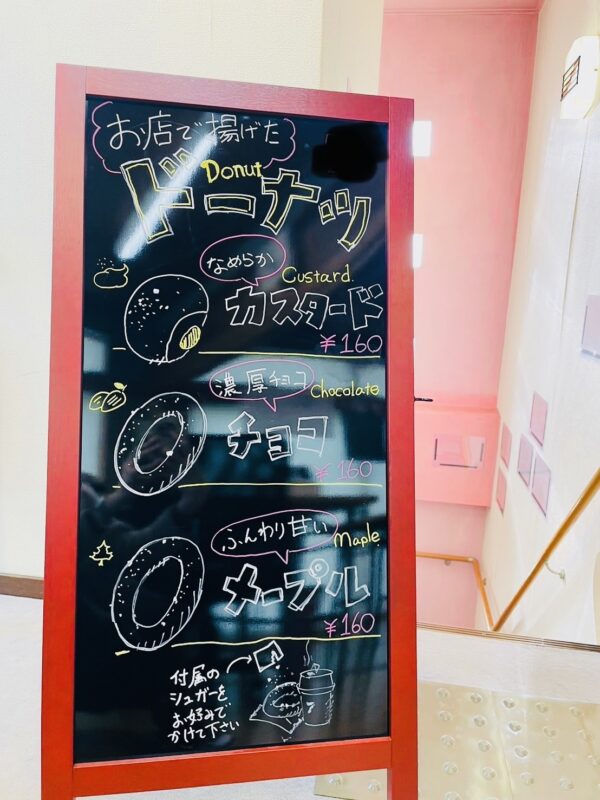 お店で揚げた
Donut
ドーナツ
なめらか
Custard.
カスタード
¥160
濃厚チョコ
Chocolate
チョコ
¥160
ふんわり甘い
Maple
メープル
¥160
付属の
シュガーを
お好みで
かけて下さい